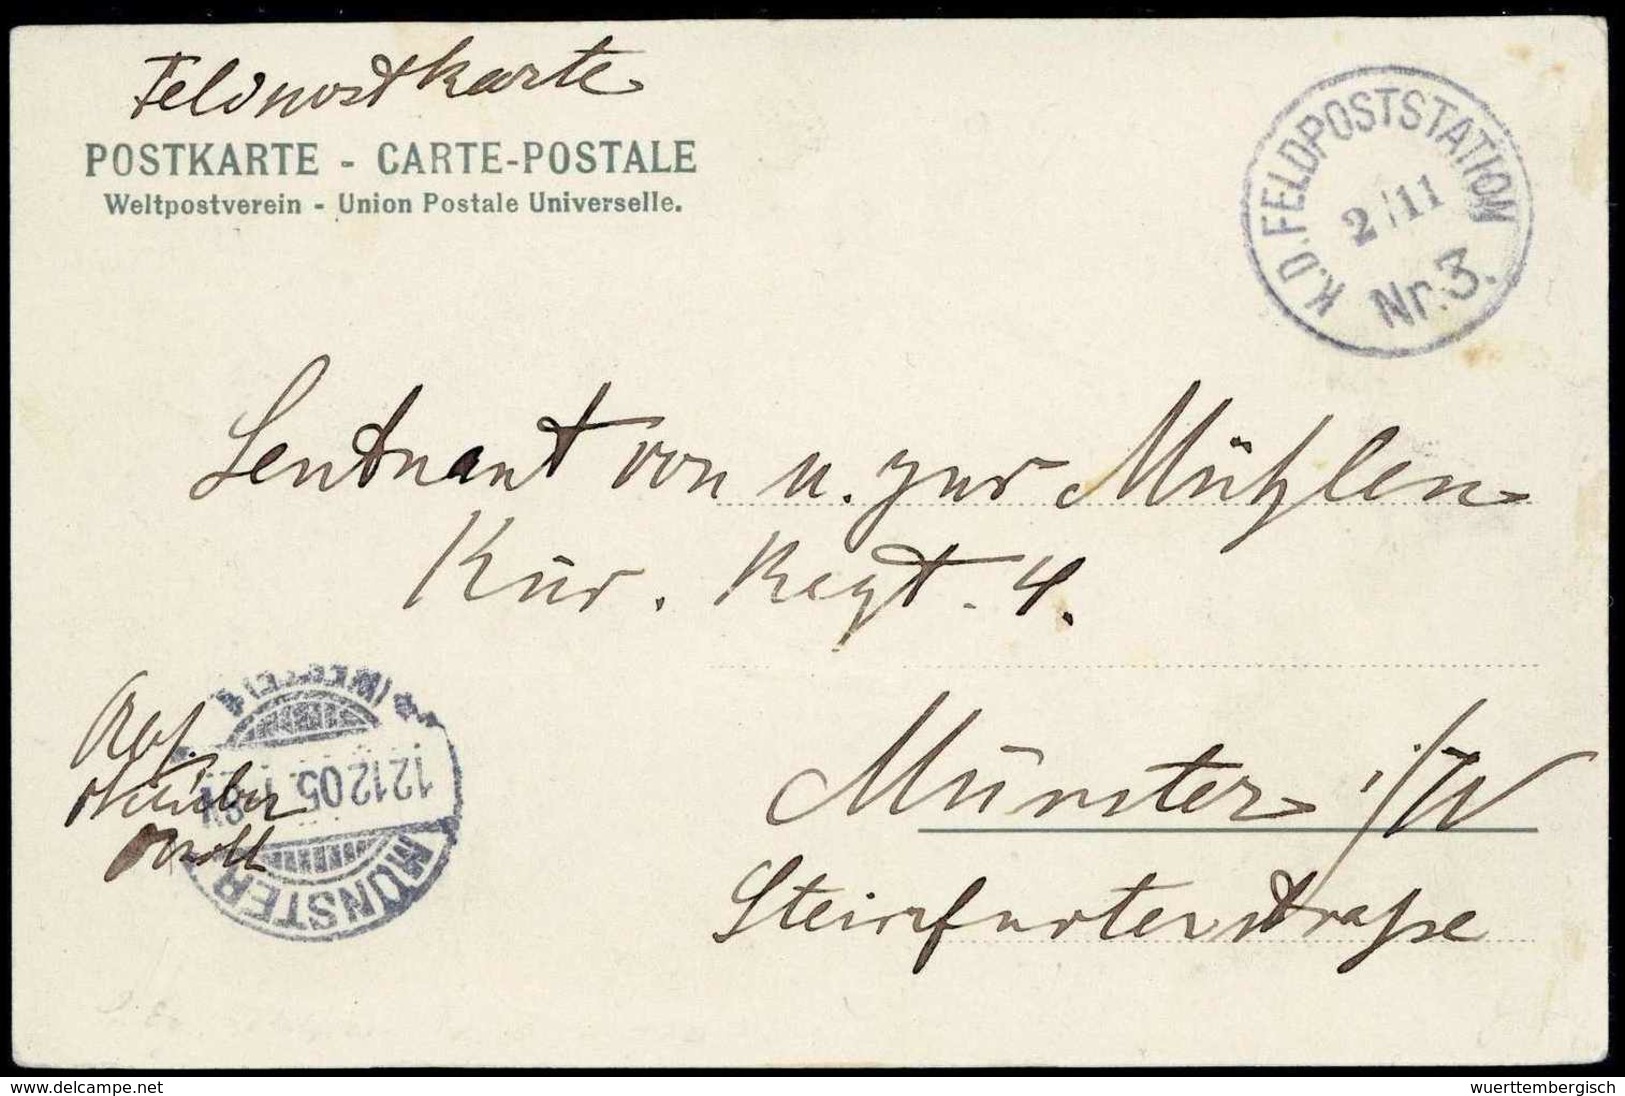 Feldpostkarte
POSTKARTE - CARTE-POSTALE
Weltpostverein - Union Postale Universelle.
K.D. FELDPOSTSTATION
2/11
Nr. 3.
Leutnant von u. zur Mühlen
Kür. Regt. 4.
Münster i/W
Steinfurterstraße
Abs.
(WESTF.)
12.12.05.
MÜNSTER
delcampe.net
wuerttembergisch